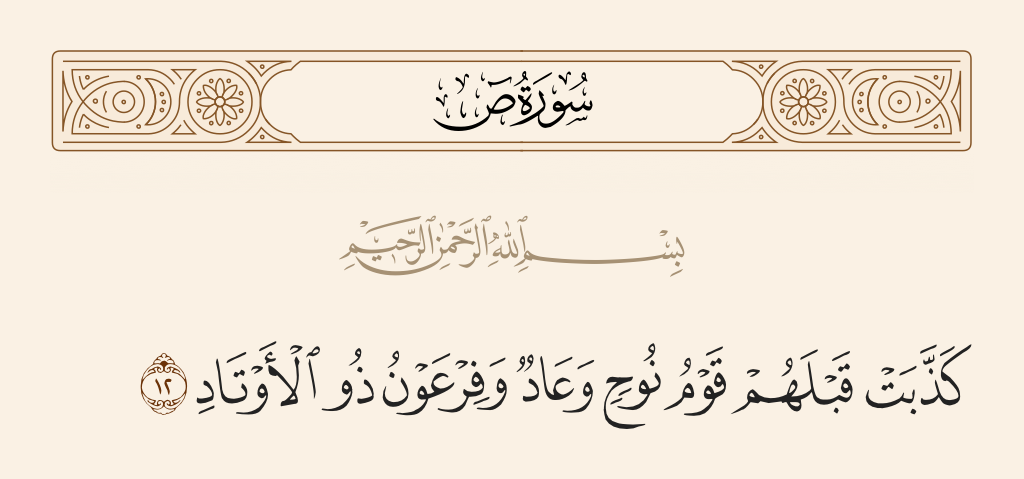 سُورَةُ صٓ
بِسْمِ ٱللَّهِ ٱلرَّحْمَٰنِ ٱلرَّحِيمِ
كَذَّبَتْ قَبْلَهُمْ قَوْمُ نُوحٍ وَعَادٌ وَفِرْعَوْنُ ذُو ٱلْأَوْتَادِ ١٢